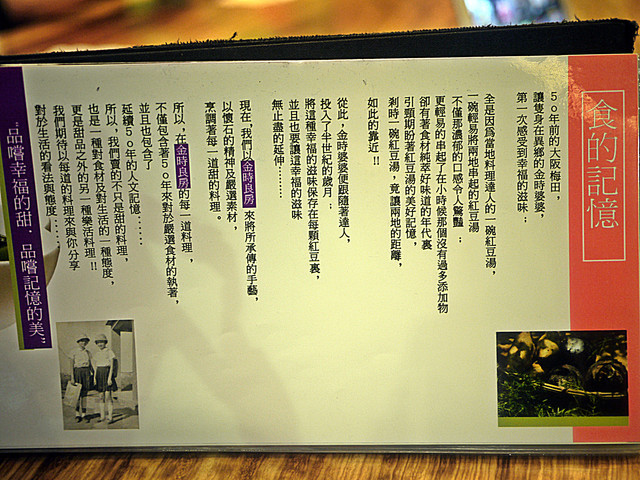 食的記憶
5o年前的大阪梅田，
讓隻身在異鄉的金時婆婆，
第一次感受到幸福的滋味：
全是因為當地料理達人的一碗紅豆湯，
一碗輕易將兩地串起的紅豆湯
不僅那濃郁的口感令人驚豔：
更輕易的串起了在小時候那個沒有過多添加物
卻有著食材純萃好味道的年代裏
引頸期盼著紅豆湯的美好記憶，
剎時一碗紅豆湯，竟讓兩地的距離，
如此的靠近!!
從此，金時婆婆便跟隨著達人，
投入了半世紀的歲月：
將這種幸福的滋味保存在每顆紅豆裏，
並且也要讓這幸福的滋味
無止盡的延伸………
現在，我們以金時良房 來將所承傳的手藝，
以懷石的精神及嚴選素材，
烹調著每一道甜的料理。
所以，在金時良房的每一道料理，
不僅包含著5o年來對於嚴選食材的執著，
並且也包含了
延續5o年的人文記憶……
所以，我們賣的不只是甜的料理，
也是一種對食材及對生活的一種態度，
更是甜品之外的另一種樂活料理!!
我們期待以每道的料理來與你分享
對於生活的看法與態度……
"品嚐幸福的甜．品嚐記憶的美"